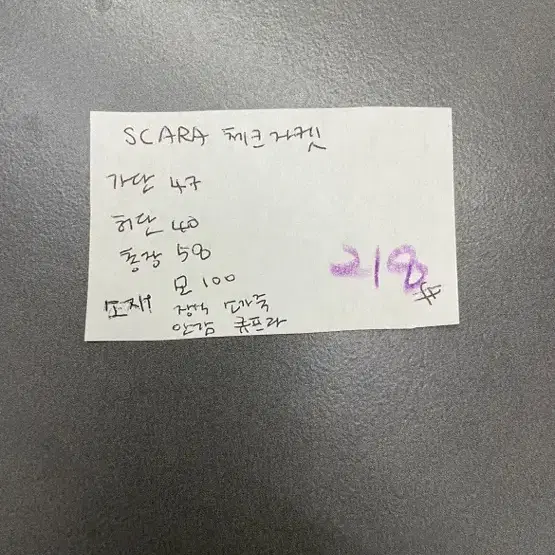 SCARA 체크자켓
가단 47
허단 40
총장 58
모 100
소재! 장식 소가죽
안감 큐프라
218
#